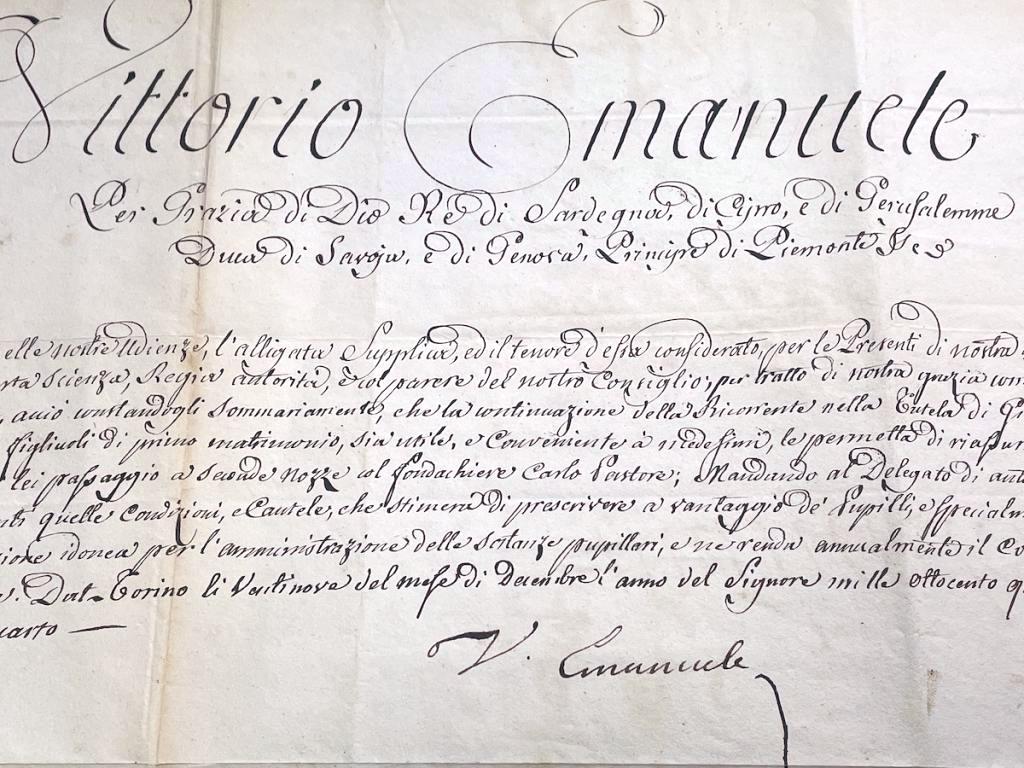 Vittorio Emanuele
Per Grazia di Dio Re di Sardegna, di Cipro, e di Gerusalemme
Duca di Savoja, e di Genova, Principe di Piemonte
elle nostre Udienze, l'alligata Supplica, ed il tenore d'essa considerato, per le Presenti di nostra
rta scienza, Regia autorità, e col parere del nostro Consiglio, per tratto di nostra grazia com
acciò constandogli sommariamente, che la continuazione della Ricorrente nella Tutela di
figliuoli di primo matrimonio, sia utile, e Conveniente à medesimi, le permetta di riassu
lei passaggio a seconde nozze col fondachiere Carlo Pastore; Mandando al Delegato di
nti quelle Condizioni, e Cautele, che stimerà di prescrivere a vantaggio de' Pupilli, e Specialm
zione idonea per l'amministrazione delle sostanze pupillari, e ne renda annualmente il Co
Dat. Torino li Ventinove del mese di Decembre l'anno del Signore mille ottocento q
uarto —
V. Emanuele